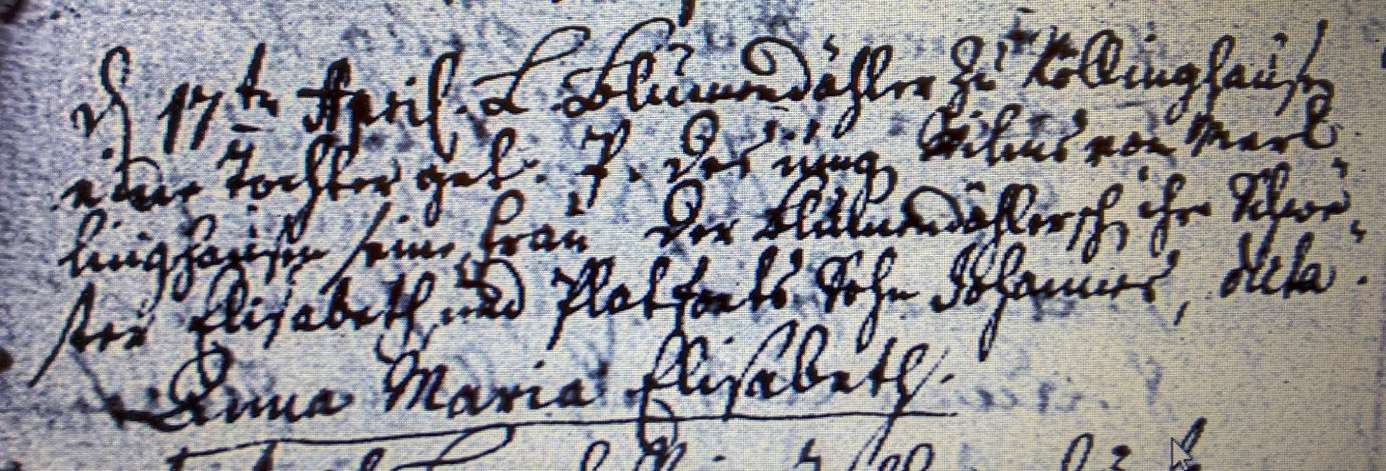 d 17ten April. L. Blumendähler zu Köllinghausen
eine Tochter get. P. des jung Wilms von Merk
linghausen seine Frau der Blumendählersch ihre Schwe
ster Elisabeth und Platfoets Sohn Johannes, dicta
Anna Maria Elisabeth.